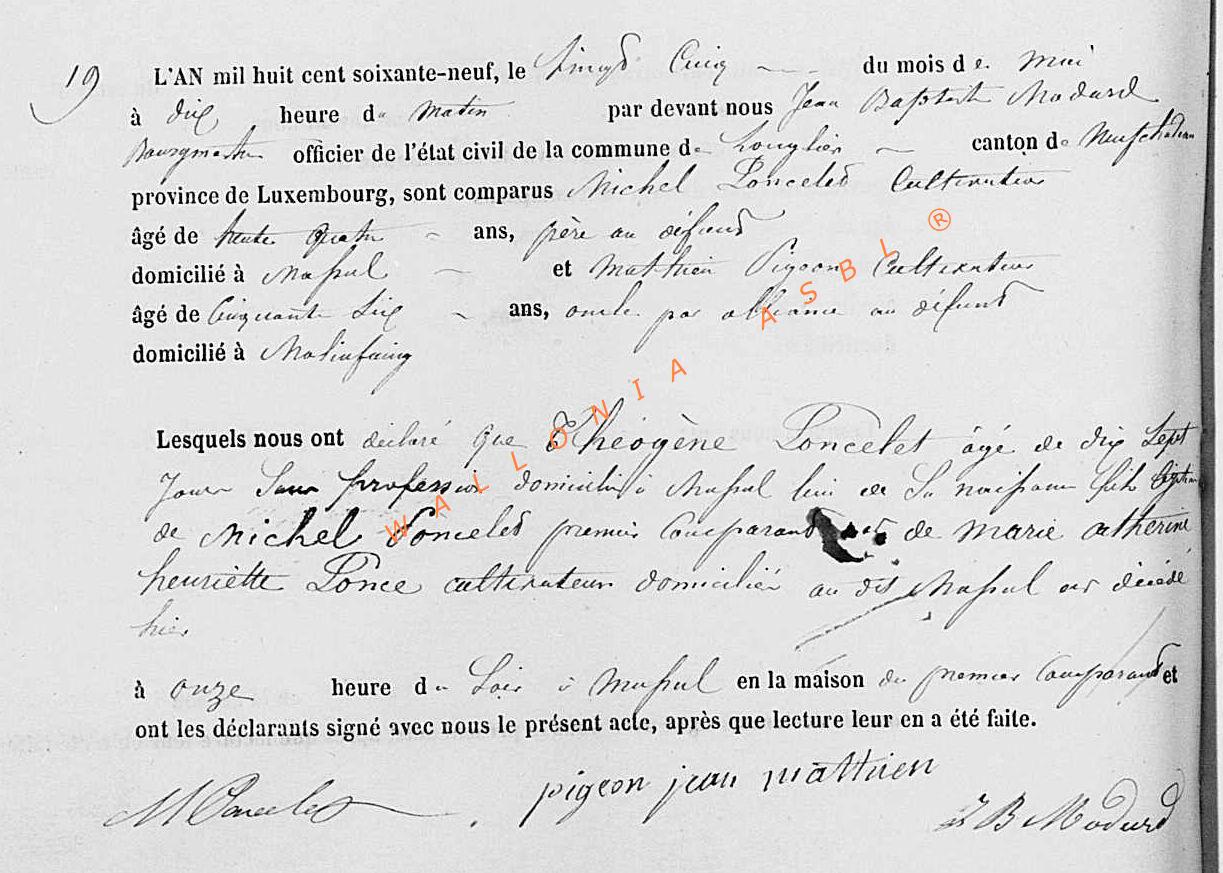 19
L'AN mil huit cent soixante-neuf, le vingt Cinq du mois de mai
à dix heure du matin par devant nous Jean Baptiste Modard
Bourgmestre officier de l'état civil de la commune de Longlier canton de Neufchateau
province de Luxembourg, sont comparus Michel Poncelet Cultivateur
âgé de trente quatre ans, père au défunt
domicilié à Massul et Mathieu Pigeon Cultivateur
âgé de Cinquante Six ans, oncle par alliance au défunt
domicilié à Molinfaing
Lesquels nous ont déclaré que Théogène Poncelet âgé de dix Sept
Jours Sans profession domicilié à Massul lieu de Sa naissance fils légitime
de Michel Poncelet premier Comparant et de marie catherine
henriette Ponce cultivateurs domiciliés au dit Massul est décédé
hier
à onze heure du Soir à Massul en la maison du premier Comparant et
ont les déclarants signé avec nous le présent acte, après que lecture leur en a été faite.
M Poncelet
pigeon jean mathieu
J B Modard
WALLONIA ASBL ®